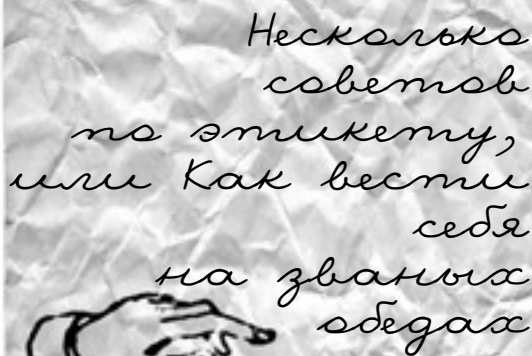 Несколько
советов
по этикету,
или Как вести
себя
на званых
обедах